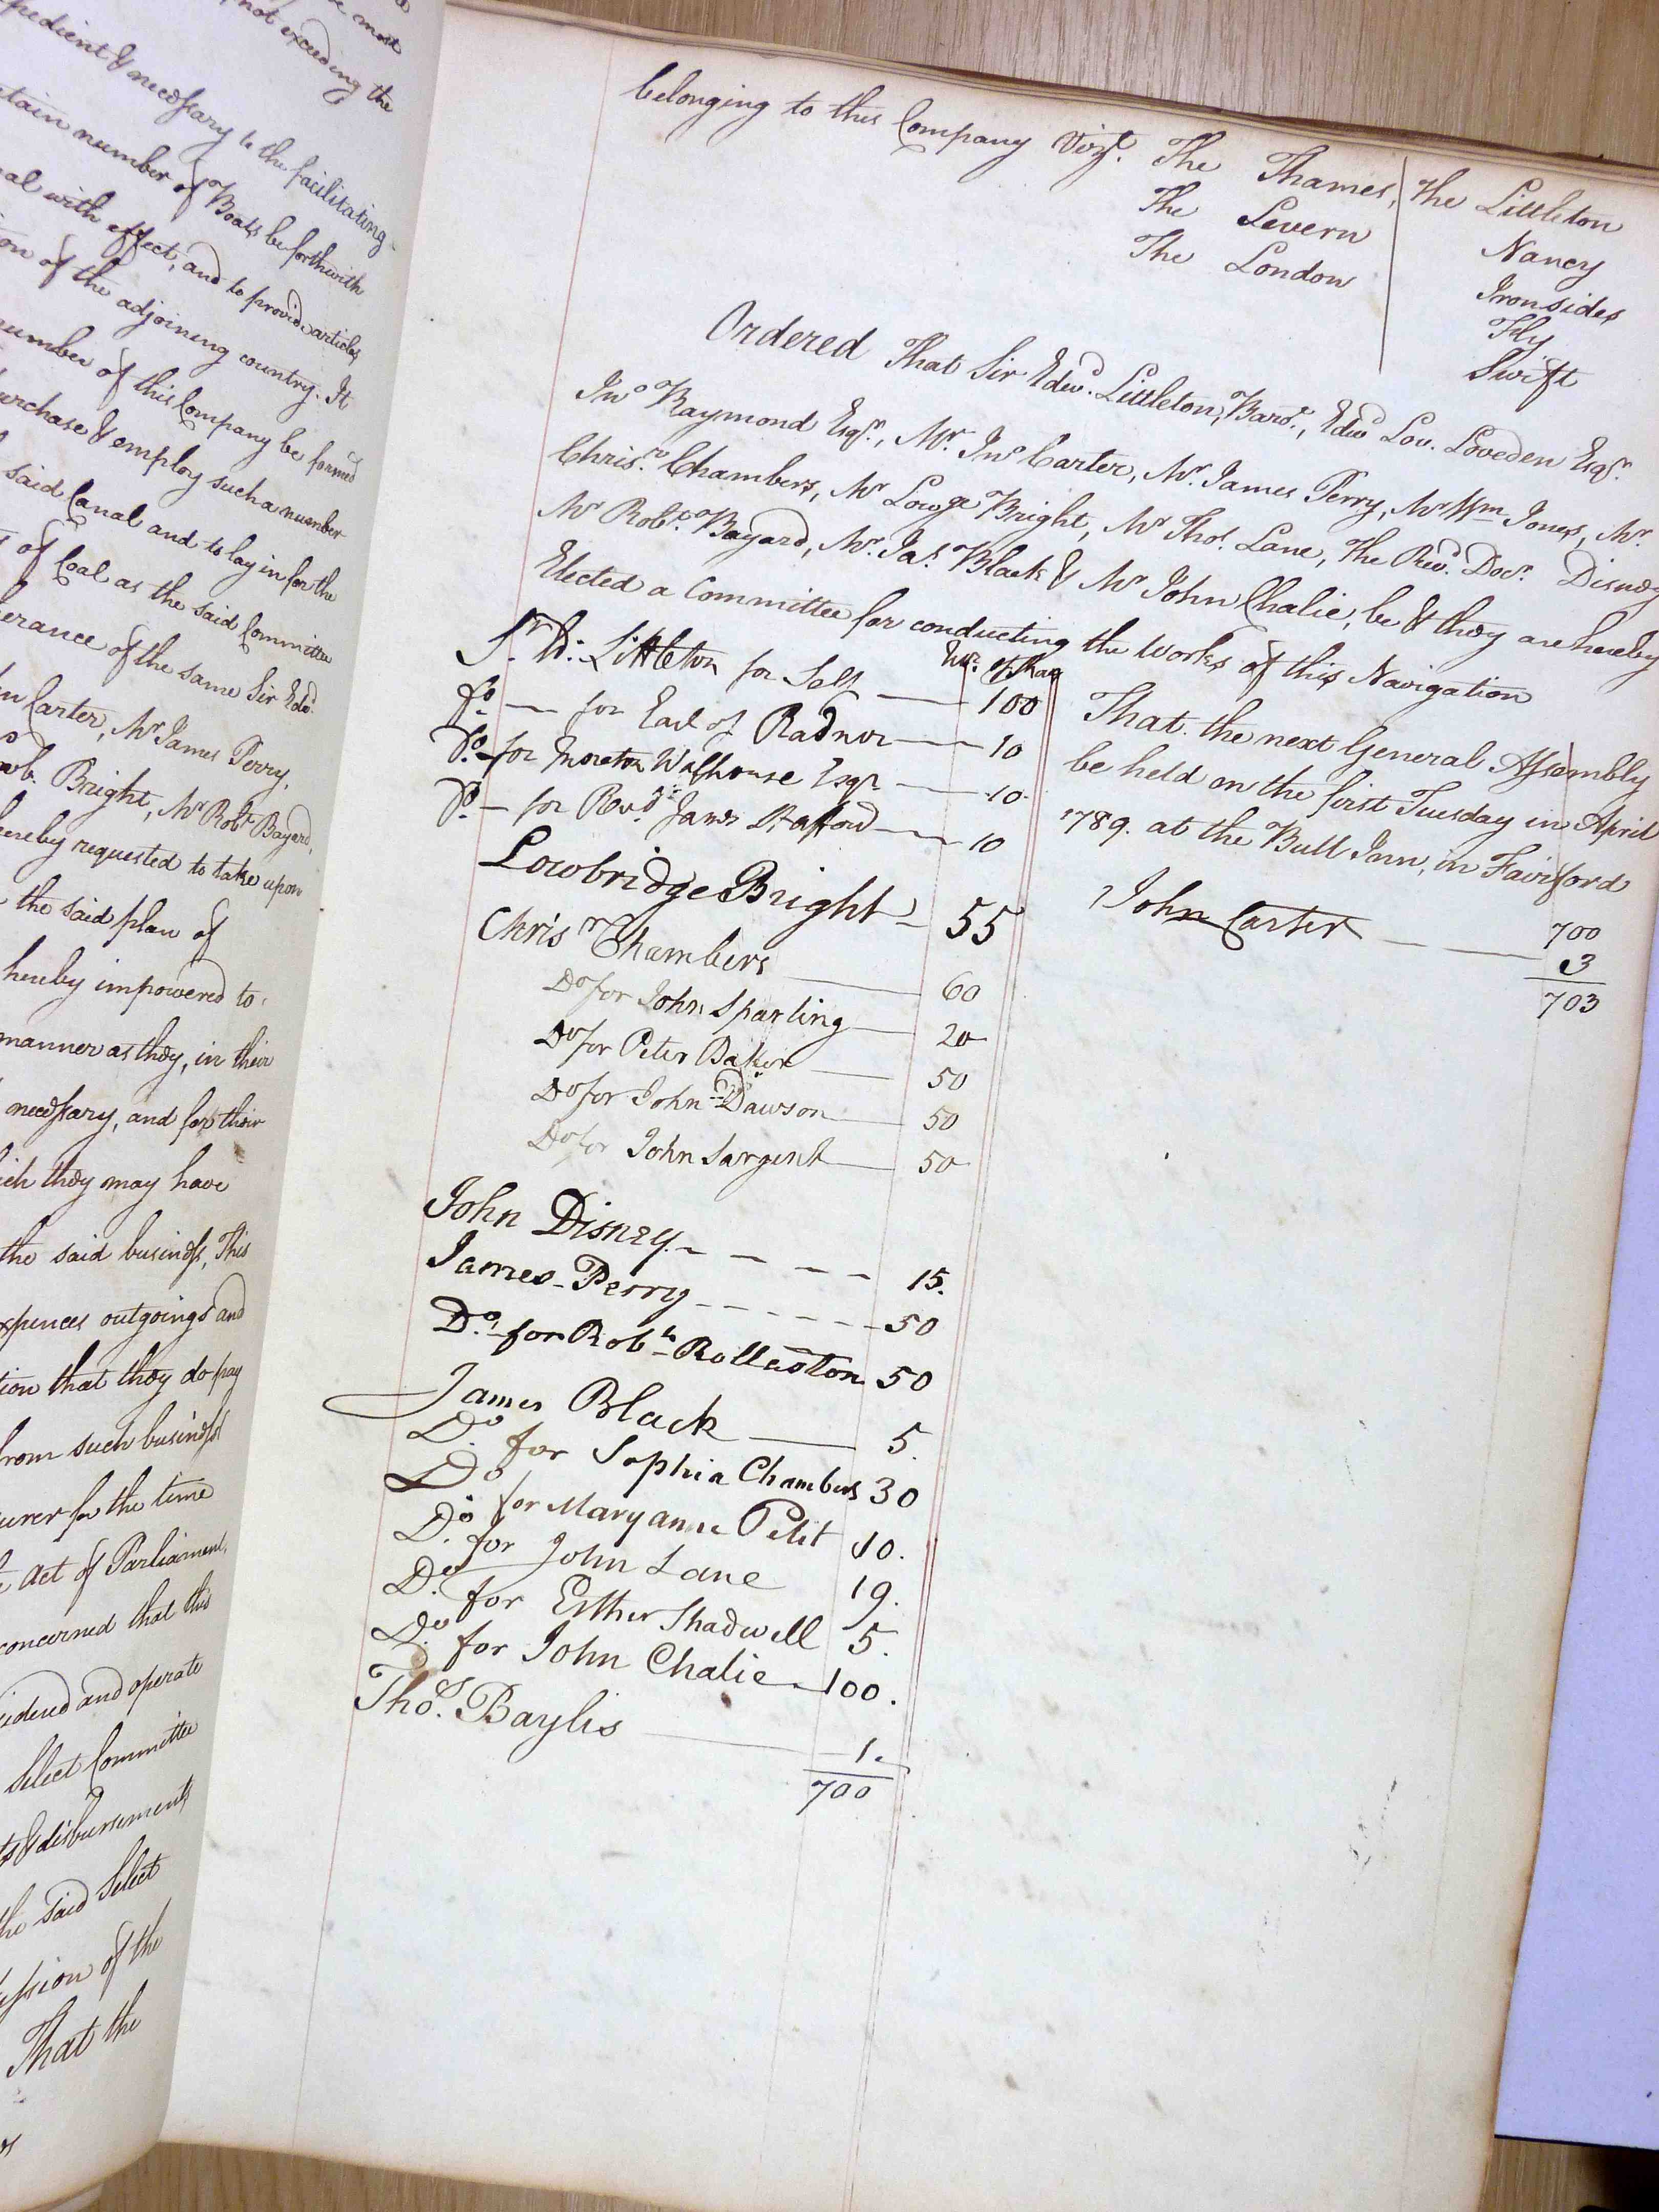 not exceeding the
pedient & necessary to the facilitating
tain number of Boats be forthwith
al with effect, and to provide articles
on of the adjoining country. It
number of this Company be formed
urchase & employ such a number
said Canal and to lay in for the
of Coal as the said Committee
erance of the same Sir Edwd.
n Carter, Mr James Perry,
owb. Bright, Mr Robt Bayard,
hereby requested to take upon
the said plan of
hereby impowered to
manner as they, in their
necessary, and for their
ich they may have
the said business, This
xpences outgoings and
tion that they do pay
from such business
urer for the time
Act of Parliament,
concerned that this
sidered and operate
Select Committee
ts & disbursements
the said Select
ession of the
That the
belonging to this Company Vizt. The Thames, The Littleton
The Severn Nancy
The London Ironsides
Fly
Swift
Ordered That Sir Edwd. Littleton, Baro.t, Edwd Lov. Loveden Esqr.
Jno Raymond Esqr., Mr. Jno Carter, Mr. James Perry, Mr Wm Jones, Mr.
Chris.r Chambers, Mr Lowge Bright, Mr Thos. Lane, The Revd. Docr. Disney
Mr Robt. Bayard, Mr. Jas. Black & Mr John Chalie, be & they are hereby
Elected a Committee for conducting the Works of this Navigation
No. of Shar
Sr. Ed: Littleton for Self — 100
Do — for Earl of Radnor — 10
Do. — for Moreton Walhouse Esqr — 10
Do — for Revd. James Stafford — 10
Lowbridge Bright — 55
Chrisr Chambers — 60
Do for John Sparling — 20
Do for Peter Baker — 50
Do for John Dawson — 50
Do for John Sargent — 50
John Disney — — — — 15.
James Perry — — — — 50
Do. for Robt. Rolleston 50
James Black — 5.
Do for Sophia Chambers 30
Do for Maryanne Petit 10.
Do. for John Lane 19.
Do. for Esther Shadwell 5.
Do. for John Chalie — 100.
Thos. Baylis — 1.
700
That the next General Assembly
be held on the first Tuesday in April
1789. at the Bull Inn, in Fairford
700
John Carter — — 3
703